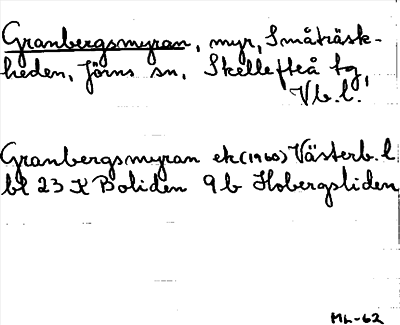 Granbergsmyran, myr, Småträsk-
heden, Jörns sn, Skellefteå tg,
Vb.l.
Granbergsmyran ek(1960) Västerb. l
bl 23 K Boliden 9 b Hobergsliden
ML-62